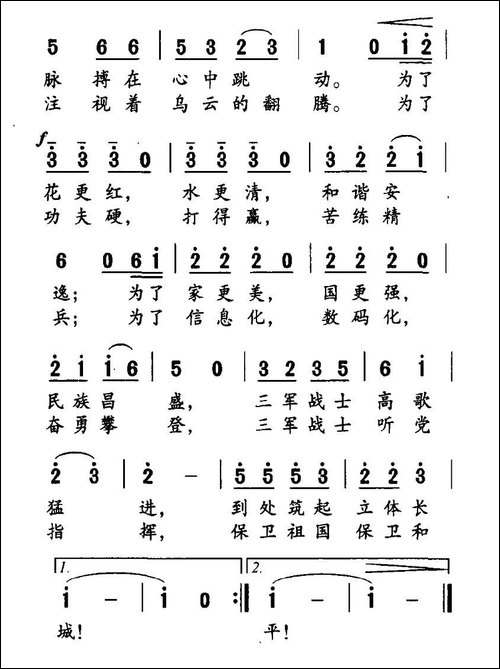 5 6 6 | 5 3 2 3 | 1 0 1 2 |
脉 搏在 心中跳 动。 为了
注 视着 乌云的翻 腾。 为了
f
3 3 3 0 | 3 3 3 0 | 3 2 2 1 |
花更红, 水更清, 和谐安
功夫硬, 打得赢, 苦练精
6 0 6 1 | 2 2 2 0 | 2 2 2 0 |
逸; 为了 家更美, 国更强,
兵; 为了 信息化, 数码化,
2 1 1 6 | 5 0 | 3 2 3 5 | 6 1 |
民族昌 盛, 三军战士 高歌
奋勇攀 登, 三军战士 听党
2 3 | 2 – | 5 5 5 3 | 2 2 3 |
猛 进, 到处筑起 立体长
指 挥, 保卫祖国 保卫和
1. 2.
1 – | 1 0 :‖ 1 – | 1 – ‖
城! 平!